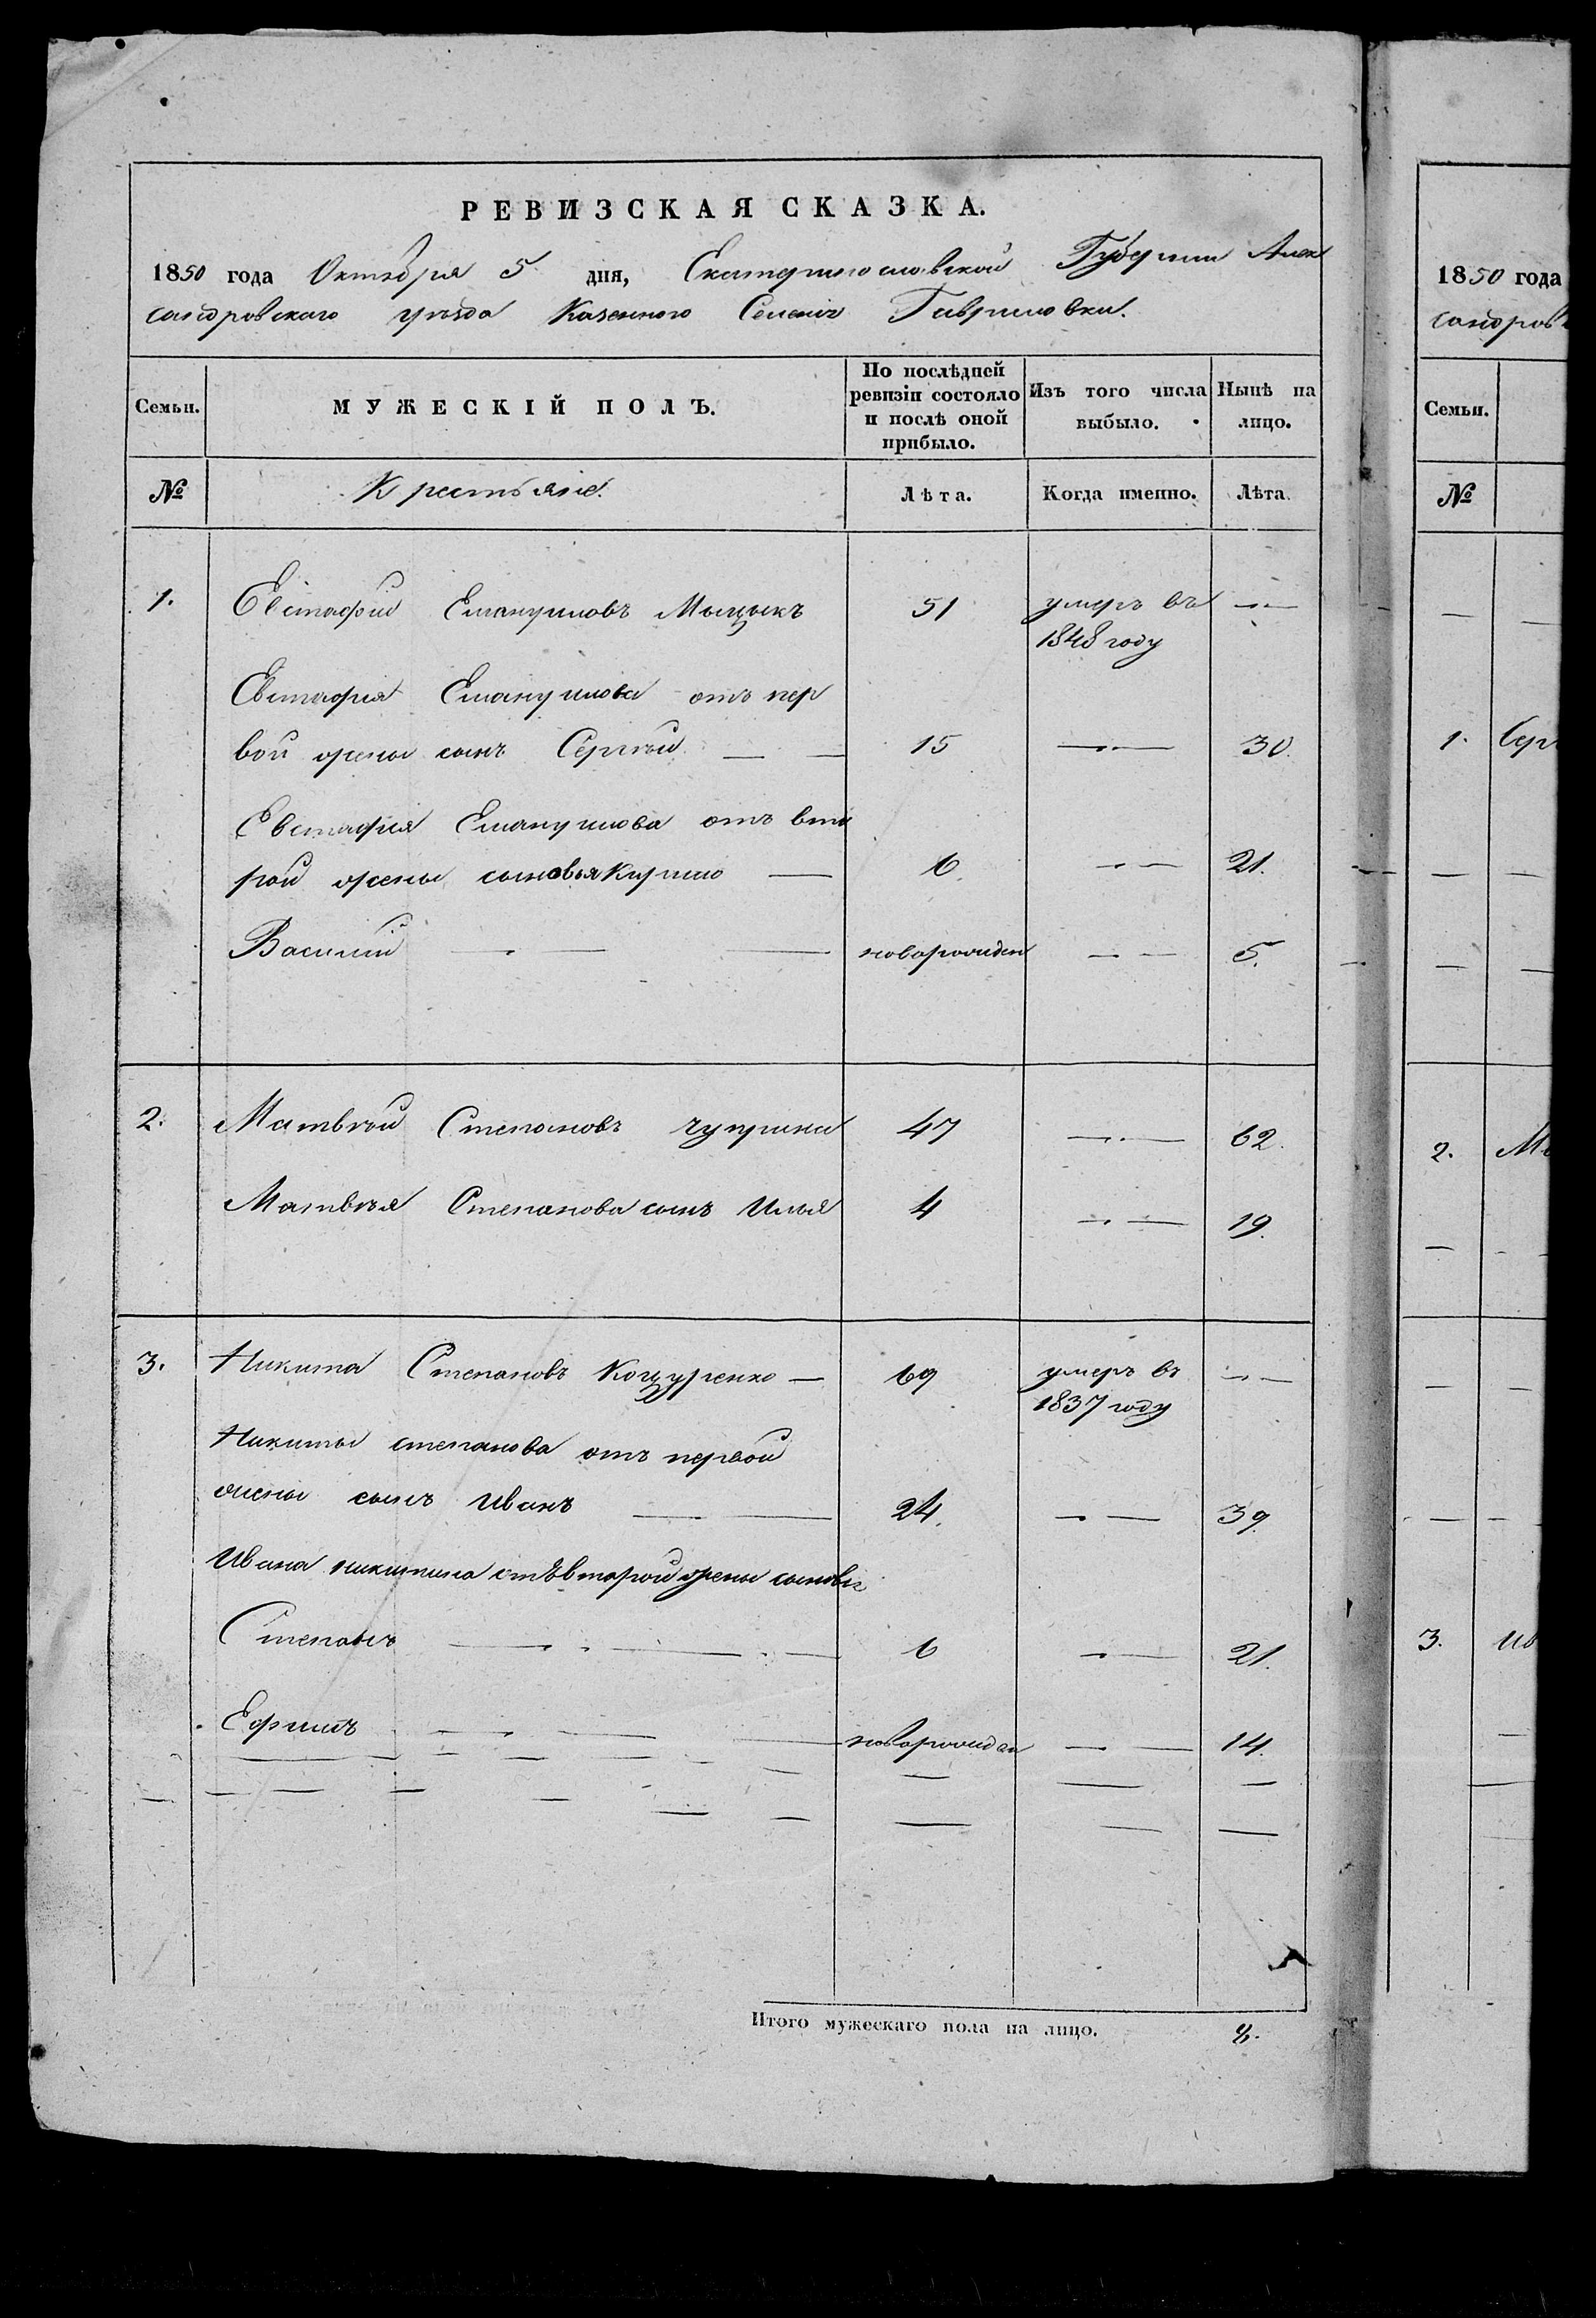 РЕВИЗСКАЯ СКАЗКА.
1850 года Октября 5 дня, Екатеринославской Губернии Алек
сандровскаго уѣзда Казенного Селенія Гавриловки.
Семьи.
МУЖЕСКІЙ ПОЛЪ.
По послѣдней ревизіи состояло и послѣ оной прибыло.
Изъ того числа выбыло.
Нынѣ на лицо.
№
Крестьяне.
Лѣта.
Когда именно.
Лѣта.
1. Евстафій Емануиловъ Мыцыкъ 51 умеръ въ — —
1848 году
Евстафія Емануилова отъ пер
вой жены сынъ Сергѣй — — 15 — — 30.
Евстафія Емануилова отъ вто
рой жены сыновья Кирило — 6. — — 21.
Василий — — — новорожден — — 5.
2. Матвѣй Степановъ Чуприна 47 — — 62.
Матвѣя Степанова сынъ Илья 4 — — 19.
3. Никита Степановъ Коцуренко — 69 умеръ въ — —
1837 году
Никиты степанова отъ первой
жены сынъ Иванъ — — 24. — — 39.
Ивана никитина отъ второй жены сыновья
Степанъ — — — 6 — — 21.
Ефимъ — — — новорожден — — 14.
Итого мужескаго пола на лицо. 8.
1850 года
сандровс
Семьи.
№
1. Серг
2. Ма
3. Ив